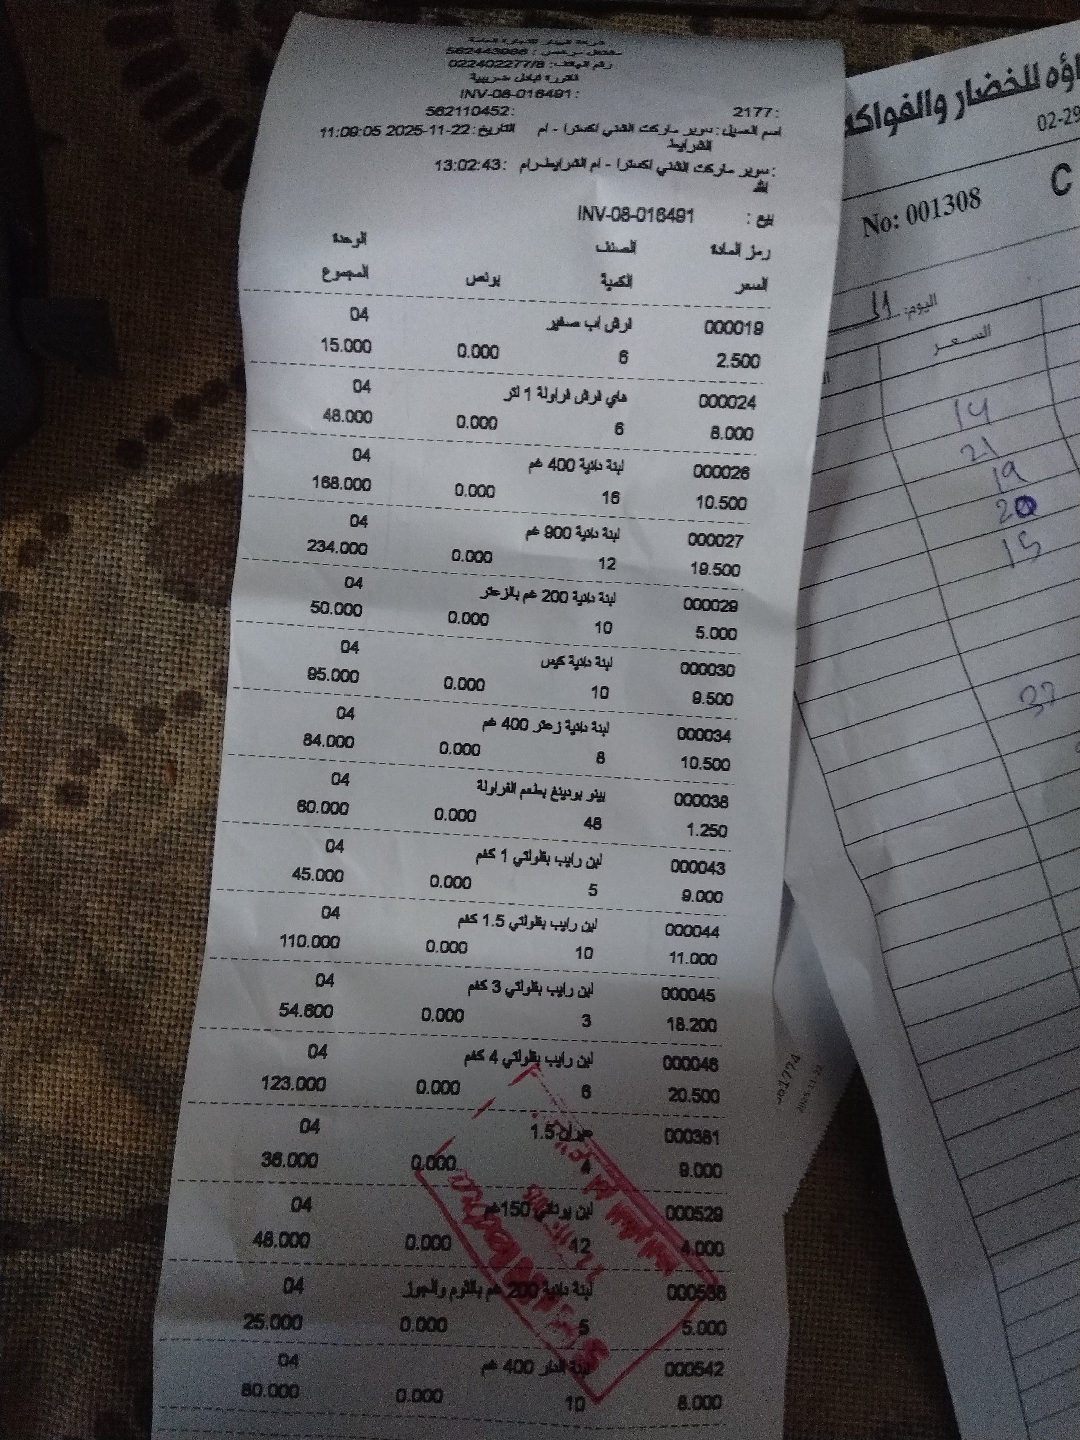 شركة البينار للتجارة العامة
مشتغل مرخص : 562443996
رقم الهاتف: 022402277/8
فاتورة ضريبية
INV-08-016491:
2177: 562110452:
اسم العميل: سوبر ماركت الشني اكسترا - ام الشرايط التاريخ: 22-11-2025 11:09:05
: سوبر ماركت الشني اكسترا - ام الشرايط رام الله 13:02:43:
بيع : INV-08-016491
رمز المادة الصنف الوحدة
السعر الكمية بونص المجموع
000019 فرش اب صغير 04
2.500 6 0.000 15.000
000024 هاي فرش فراولة 1 لتر 04
8.000 6 0.000 48.000
000026 لبنة دانية 400 غم 04
10.500 16 0.000 168.000
000027 لبنة دانية 900 غم 04
19.500 12 0.000 234.000
000029 لبنة دانية 200 غم بالزعتر 04
5.000 10 0.000 50.000
000030 لبنة دانية كيس 04
9.500 10 0.000 95.000
000034 لبنة دانية زعتر 400 غم 04
10.500 8 0.000 84.000
000038 بينو بودينغ بطعم الفراولة 04
1.250 48 0.000 60.000
000043 لبن رايب بقلولتي 1 كغم 04
9.000 5 0.000 45.000
000044 لبن رايب بقلولتي 1.5 كغم 04
11.000 10 0.000 110.000
000045 لبن رايب بقلولتي 3 كغم 04
18.200 3 0.000 54.600
000046 لبن رايب بقلولتي 4 كغم 04
20.500 6 0.000 123.000
000381 عيران 1.5 04
9.000 4 0.000 36.000
000529 لبن يوناني 150غم 04
4.000 12 0.000 48.000
000536 لبنة دانية 200 غم بالثوم والجوز 04
5.000 5 0.000 25.000
000542 لبنة الدار 400 غم 04
8.000 10 0.000 80.000
للخضار والفواكه
02-29
C
No: 001308
اليوم:
السعر
14
21
19
20
15
37